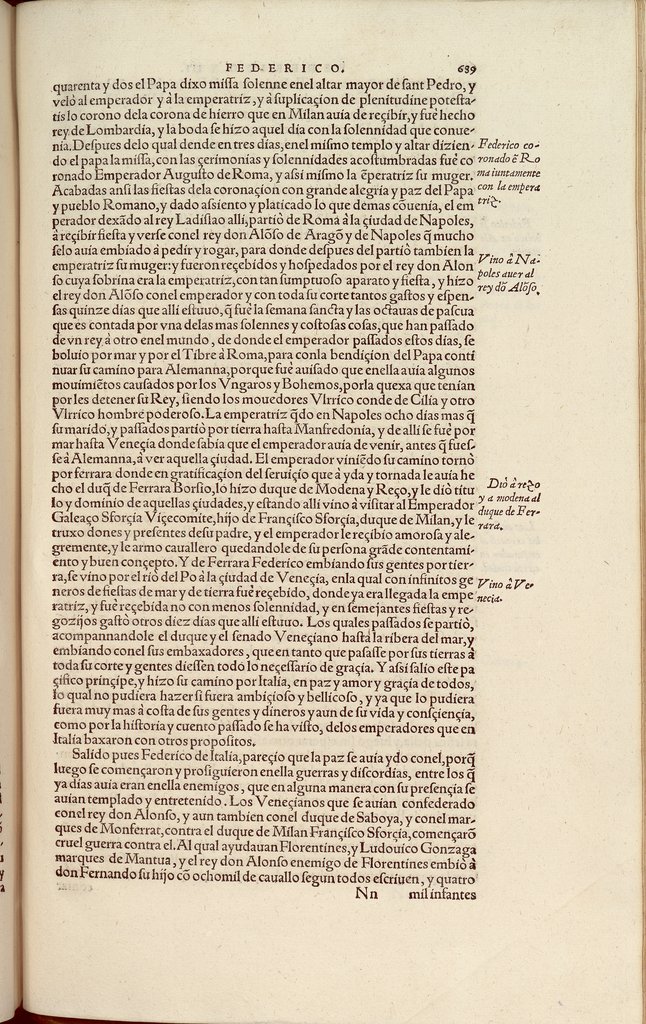 FEDERICO. 689
quarenta y dos el Papa dixo missa solenne enel altar mayor de sant Pedro, y
velò al emperador y à la emperatriz, y à suplicaçion de plenitudine potesta-
tis lo corono dela corona de hierro que en Milan auia de reçibir, y fuè hecho
rey de Lombardia, y la boda se hizo aquel dia con la solennidad que conue-
nia. Despues delo qual dende en tres dias, enel mismo templo y altar dizien-
do el papa la missa, con las çerimonias y solennidades acostumbradas fuè co
ronado Emperador Augusto de Roma, y assi mismo la ẽperatriz su muger.
Acabadas ansi las fiestas dela coronaçion con grande alegria y paz del Papa
y pueblo Romano, y dado assiento y platicado lo que demas cõuenia, el em
perador dexãdo al rey Ladislao alli, partiò de Roma à la çiudad de Napoles,
à reçibir fiesta y verse conel rey don Alõso de Aragõ y de Napoles q̃ mucho
selo auia embiado à pedir y rogar, para donde despues del partiò tambien la
emperatriz su muger: y fueron reçebidos y hospedados por el rey don Alon
so cuya sobrina era la emperatriz, con tan sumptuoso aparato y fiesta, y hizo
el rey don Alõso conel emperador y con toda su corte tantos gastos y espen-
sas quinze dias que alli estuuo, q̃ fuè la semana sancta y las octauas de pascua
que es contada por vna delas mas solennes y costosas cosas, que han passado
de vn rey à otro enel mundo, de donde el emperador passados estos dias, se
boluio por mar y por el Tibre à Roma, para conla bendiçion del Papa conti
nuar su camino para Alemanna, porque fuè auisado que enella auia algunos
mouimiẽtos causados por los Vngaros y Bohemos, porla quexa que tenian
por les detener su Rey, siendo los mouedores Vlrrico conde de Cilia y otro
Vlrrico hombre poderoso. La emperatriz q̃do en Napoles ocho dias mas q̃
su marido, y passados partiò por tierra hasta Manfredonia, y de alli se fuè por
mar hasta Veneçia donde sabia que el emperador auia de venir, antes q̃ fues-
se à Alemanna, à ver aquella çiudad. El emperador viniẽdo su camino tornò
por ferrara donde en gratificaçion del seruiçio que à yda y tornada le auia he
cho el duq̃ de Ferrara Borsio, lo hizo duque de Modena y Reço, y le diò titu
lo y dominio de aquellas çiudades, y estando alli vino à visitar al Emperador
Galeaço Sforçia Viçecomite, hijo de Françisco Sforçia, duque de Milan, y le
truxo dones y presentes desu padre, y el emperador le reçibio amorosa y ale-
gremente, y le armo cauallero quedandole de su persona grãde contentami-
ento y buen conçepto. Y de Ferrara Federico embiando sus gentes por tier-
ra, se vino por el riò del Po à la çiudad de Veneçia, enla qual con infinitos ge
neros de fiestas de mar y de tierra fuè reçebido, donde ya era llegada la empe
ratriz, y fuè reçebida no con menos solennidad, y en semejantes fiestas y re-
gozijos gastò otros diez dias que alli estuuo. Los quales passados se partiò,
acompannandole el duque y el senado Veneçiano hasta la ribera del mar, y
embiando conel sus embaxadores, que en tanto que passasse por sus tierras à
toda su corte y gentes diessen todo lo necessario de graçia. Y assi salio este pa
çifico prinçipe, y hizo su camino por Italia, en paz y amor y graçia de todos,
lo qual no pudiera hazer si fuera ambiçioso y bellicoso, y ya que lo pudiera
fuera muy mas à costa de sus gentes y dineros y aun de su vida y consçiençia,
como por la historia y cuento passado se ha visto, delos emperadores que en
Italia baxaron con otros propositos.
Salido pues Federico de Italia, pareçio que la paz se auia ydo conel, porq̃
luego se començaron y prosiguieron enella guerras y discordias, entre los q̃
ya dias auia eran enella enemigos, que en alguna manera con su presençia se
auian templado y entretenido. Los Veneçianos que se auian confederado
conel rey don Alonso, y aun tambien conel duque de Saboya, y conel mar-
ques de Monferrat, contra el duque de Milan Françisco Sforçia, començarõ
cruel guerra contra el. Al qual ayudauan Florentines, y Ludouico Gonzaga
marques de Mantua, y el rey don Alonso enemigo de Florentines embiò à
don Fernando su hijo cõ ochomil de cauallo segun todos escriuen, y quatro
Nn mil infantes
Federico co-
ronado ẽ Ro
ma iuntamente
con la empera
triz.
Vino à Na-
poles auer al
rey dõ Alõso.
Diò à reço
y a modena al
duque de Fer-
rara.
Vino à Ve
necia.